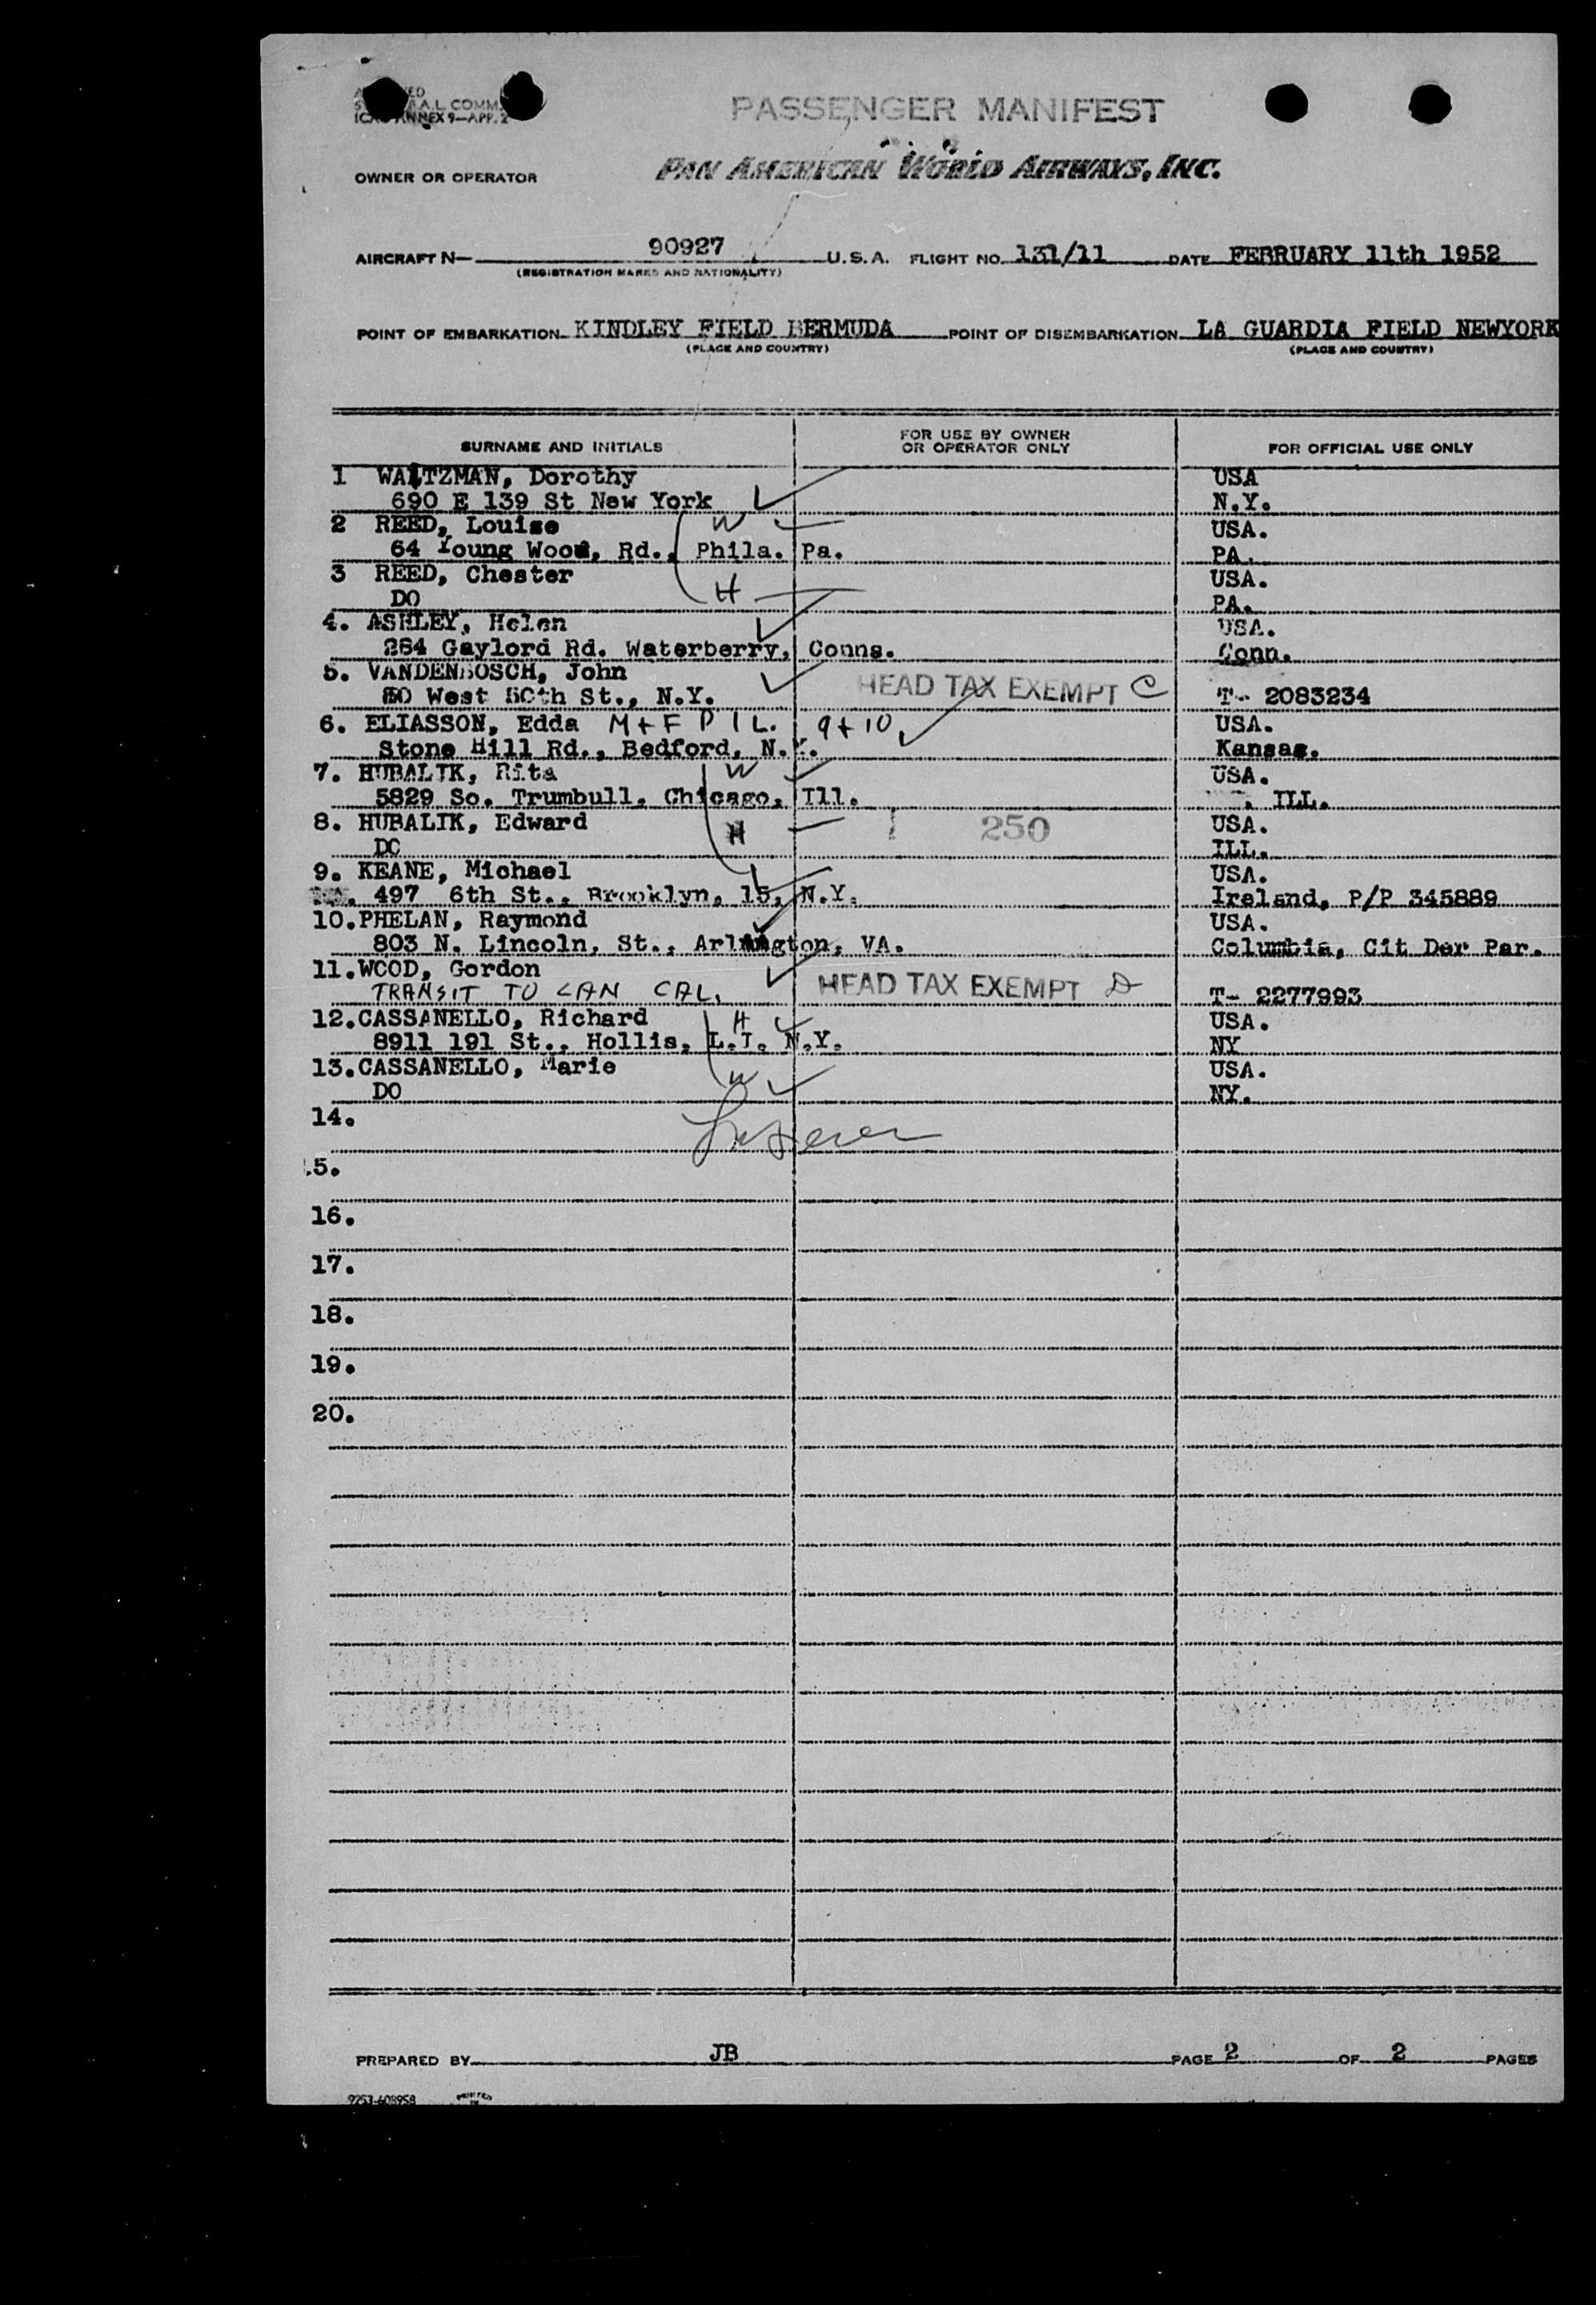 PASSENGER MANIFEST
A.L. COMM.
ANNEX 9—APP. 2
OWNER OR OPERATOR PAN AMERICAN WORLD AIRWAYS, INC.
AIRCRAFT N— 90927 U.S.A. FLIGHT NO. 131/11 DATE FEBRUARY 11th 1952
(REGISTRATION MARKS AND NATIONALITY)
POINT OF EMBARKATION KINDLEY FIELD BERMUDA POINT OF DISEMBARKATION LA GUARDIA FIELD NEWYORK
(PLACE AND COUNTRY) (PLACE AND COUNTRY)
SURNAME AND INITIALS FOR USE BY OWNER OR OPERATOR ONLY FOR OFFICIAL USE ONLY
1 WALTZMAN, Dorothy USA
690 E 139 St New York N.Y.
2 REED, Louise W USA.
64 Young Wood, Rd., Phila. Pa. PA.
3 REED, Chester USA.
DO H PA.
4. ASHLEY, Helen USA.
284 Gaylord Rd. Waterberry, Conns. Conn.
5. VANDENBOSCH, John HEAD TAX EXEMPT C
80 West 50th St., N.Y. T- 2083234
6. ELIASSON, Edda M + F P I L. 9 + 10 USA.
Stone Hill Rd., Bedford, N.Y. Kansas.
7. HUBALIK, Rita W USA.
5829 So. Trumbull, Chicago, Ill. ILL.
8. HUBALIK, Edward H 250 USA.
DO ILL.
9. KEANE, Michael USA.
497 6th St., Brooklyn, 15, N.Y. Ireland, P/P 345889
10. PHELAN, Raymond USA.
803 N. Lincoln, St., Arlington, VA. Columbia, Cit Der Par.
11. WOOD, Gordon HEAD TAX EXEMPT D
TRANSIT TO LAN CAL. T- 2277993
12. CASSANELLO, Richard H USA.
8911 191 St., Hollis, L.I. N.Y. NY
13. CASSANELLO, Marie USA.
DO W NY.
14.
15.
16.
17.
18.
19.
20.
PREPARED BY JB PAGE 2 OF 2 PAGES
9253-608958